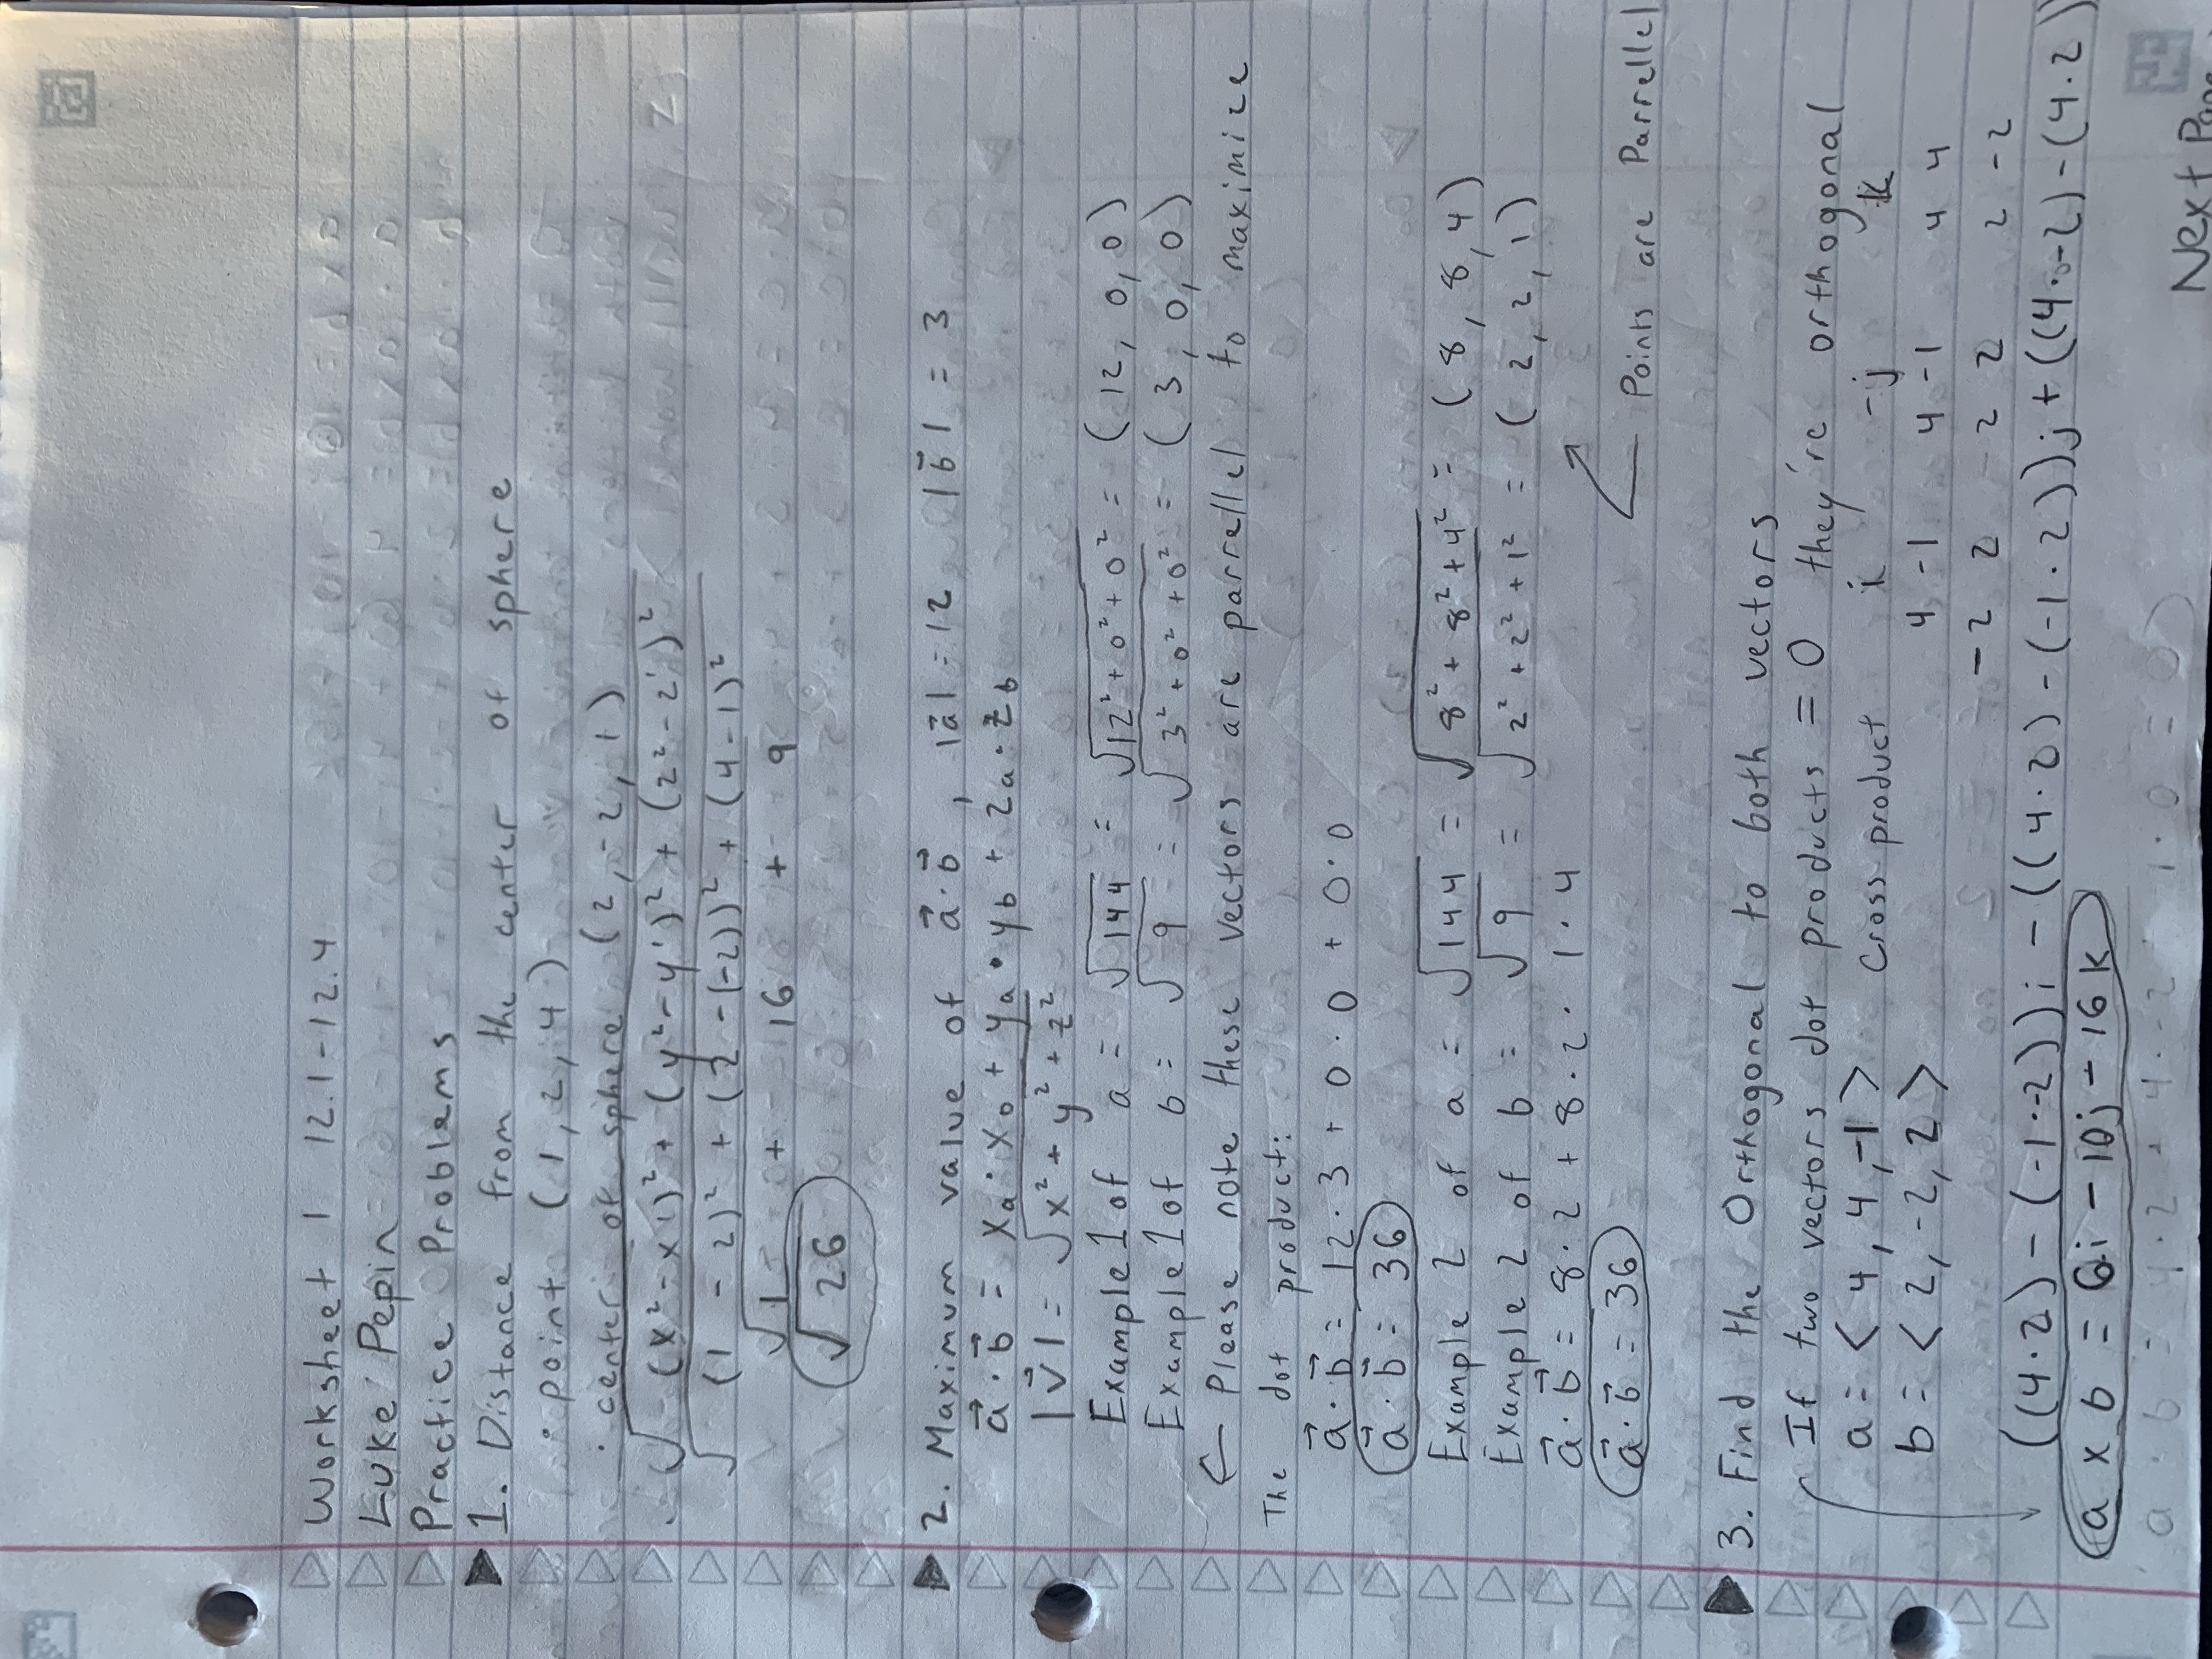 Worksheet 1 12.1-12.4
Luke Pepin
Practice Problems
1. Distance from the center of sphere
• point (1, 2, 4)
• center of sphere (2, -2, 1)
√(x²-x1)² + (y²-y¹)² + (z²-z¹)²
√(1 - 2)² + (2 -(-2))² + (4-1)²
√1 + 16 + 9
√26
2. Maximum value of a⃗·b⃗, |a⃗|=12 |b⃗| = 3
a⃗ · b⃗ = xa·xb + ya·yb + za·zb
|v⃗| = √x² + y² + z²
Example 1 of a = √144 = √12² + 0² + 0² = (12, 0, 0)
Example 1 of b = √9 = √3² + 0² + 0² = (3, 0, 0)
← Please note these vectors are parrellel to maximize
The dot product:
a⃗·b⃗ = 12·3 + 0·0 + 0·0
a⃗·b⃗ = 36
Example 2 of a = √144 = √8² + 8² + 4² = (8, 8, 4)
Example 2 of b = √9 = √2² + 2² + 1² = (2, 2, 1)
a⃗·b⃗ = 8·2 + 8·2· 1·4
a⃗·b⃗ = 36
Points are Parrellel
3. Find the Orthogonal to both vectors
If two vectors dot products = 0 they're orthogonal
a = < 4, 4, -1 > Cross product i -j k
b = < 2, -2, 2 > 4 -1 4 -1 4 4
-2 2 2 2 2 -2
((4·2) - (-1·-2))i - ((4·2) - (-1·2))j + ((4·-2) - (4·2)
a x b = 6i - 10j - 16k
a · b = 4·2 + 4·-2 1·0 = 0
Next